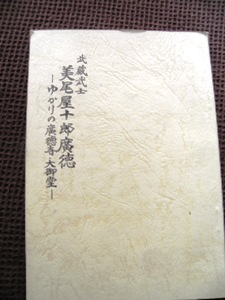 武蔵武士
美尾屋十郎廣徳
―ゆかりの廣徳寺・大御堂―